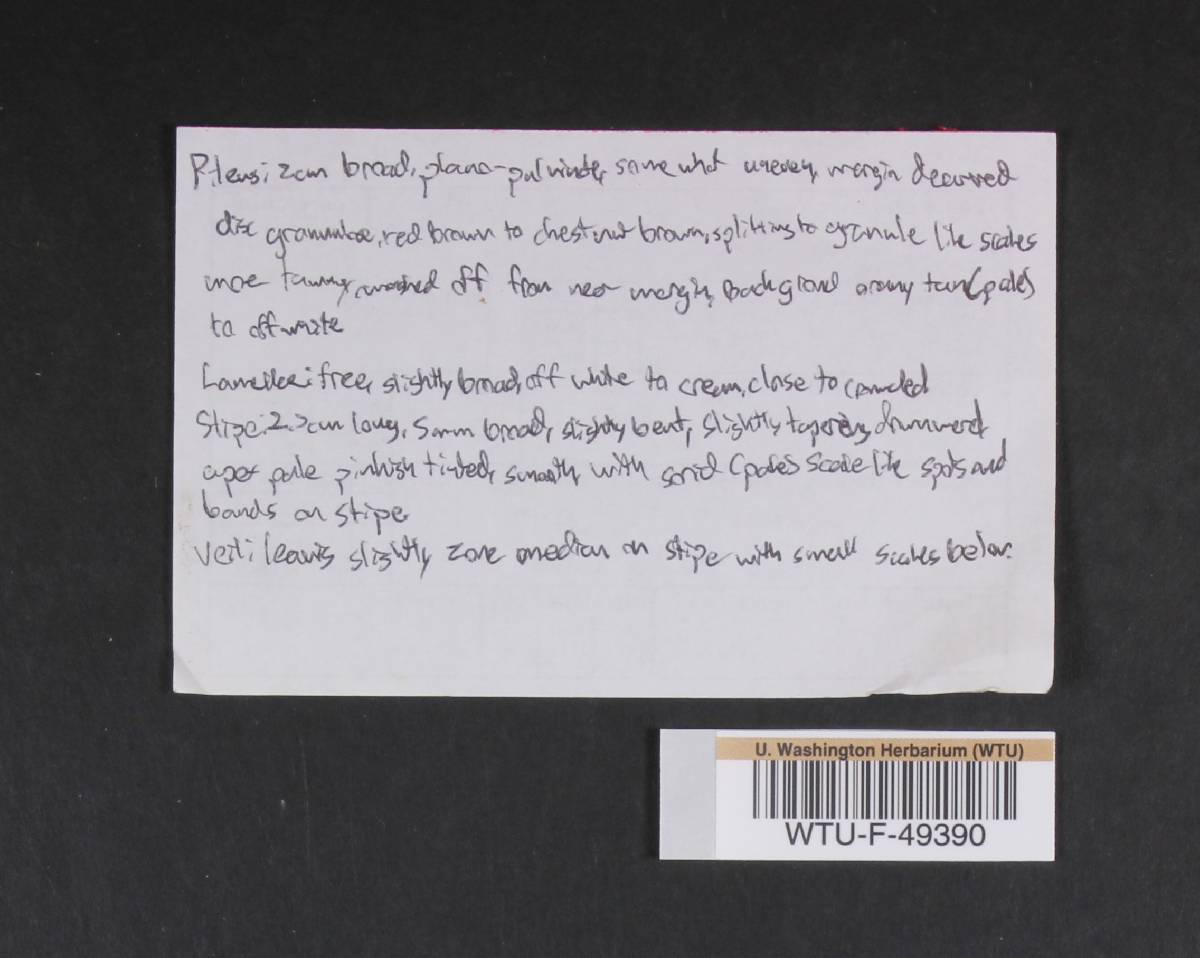 Pileus: 2cm broad, plano-pulvinate, somewhat uneven, margin decurved
disc granulose, red brown to chestnut brown, splitting to granule like scales
more tawny, washed off from near margin, background tan (pale)
to off white
Lamellae: free, slightly broad, off white to cream, close to crowded
Stipe: 2.5cm long, 5mm broad, slightly bent, slightly tapering downward
apex pale pinkish tinted, smooth with (pale) scale like spots and
bands on stipe
Veil: leaves slightly zone median on stipe with small scales below.
U. Washington Herbarium (WTU)
WTU-F-49390